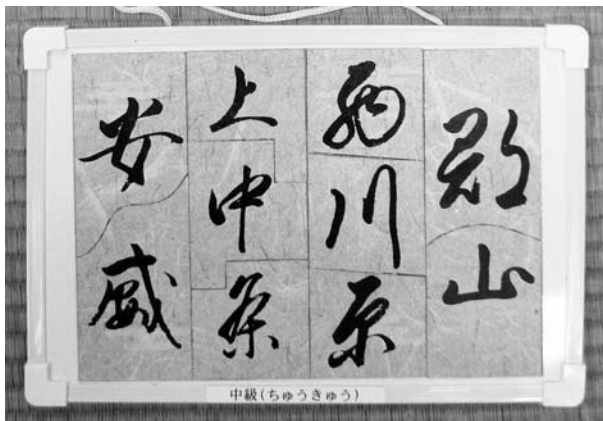 郡山
宿川原
上中条
安威
中級(ちゅうきゅう)